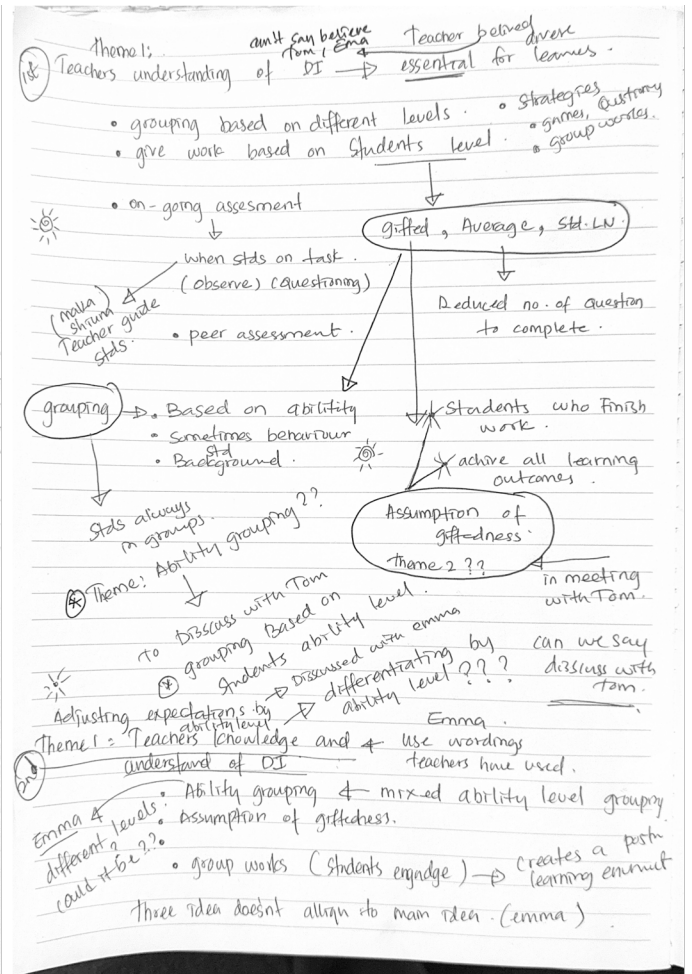 1st
Theme 1:
can't say believe
Tom / Ema
Teacher belived diverse
Teachers understanding of DI → essential for learnes.
• grouping based on different levels.
• give work based on Students level.
• strategies
• games, Qustioning
• group works.
• on-going assesment
when stds on task.
(observe) (Questioning)
(maka)
shiuna
Teacher guide
stds.
• peer assessment.
gifted, Average, Std. LN.
Reduced no. of question
to complete.
grouping → • Based on abilitity
• sometimes behaviour
• Std Background.
Students who finish
work.
achive all learning
outcomes.
Stds always
in groups.
Assumption of
giftedness.
theme 2 ??
in meeting
with Tom.
* Theme: Ability grouping??
To Disscuss with Tom
* grouping Based on
Students ability level.
→ Discussed with emma
→ differentiating by
ability level???
can we say
disscuss with
tom.
Adjusting expectations by
ability level
2nd
Theme 1 = Teachers knowledge and
understand of DI
Emma.
use wordings
teachers have used.
• Ability grouping & mixed ability level grouping
• Assumption of giftedness.
Emma &
different levels.
Could it be??
• group works (students engadge) → creates a
learning
three idea doesn't allign to main idea. (emma)